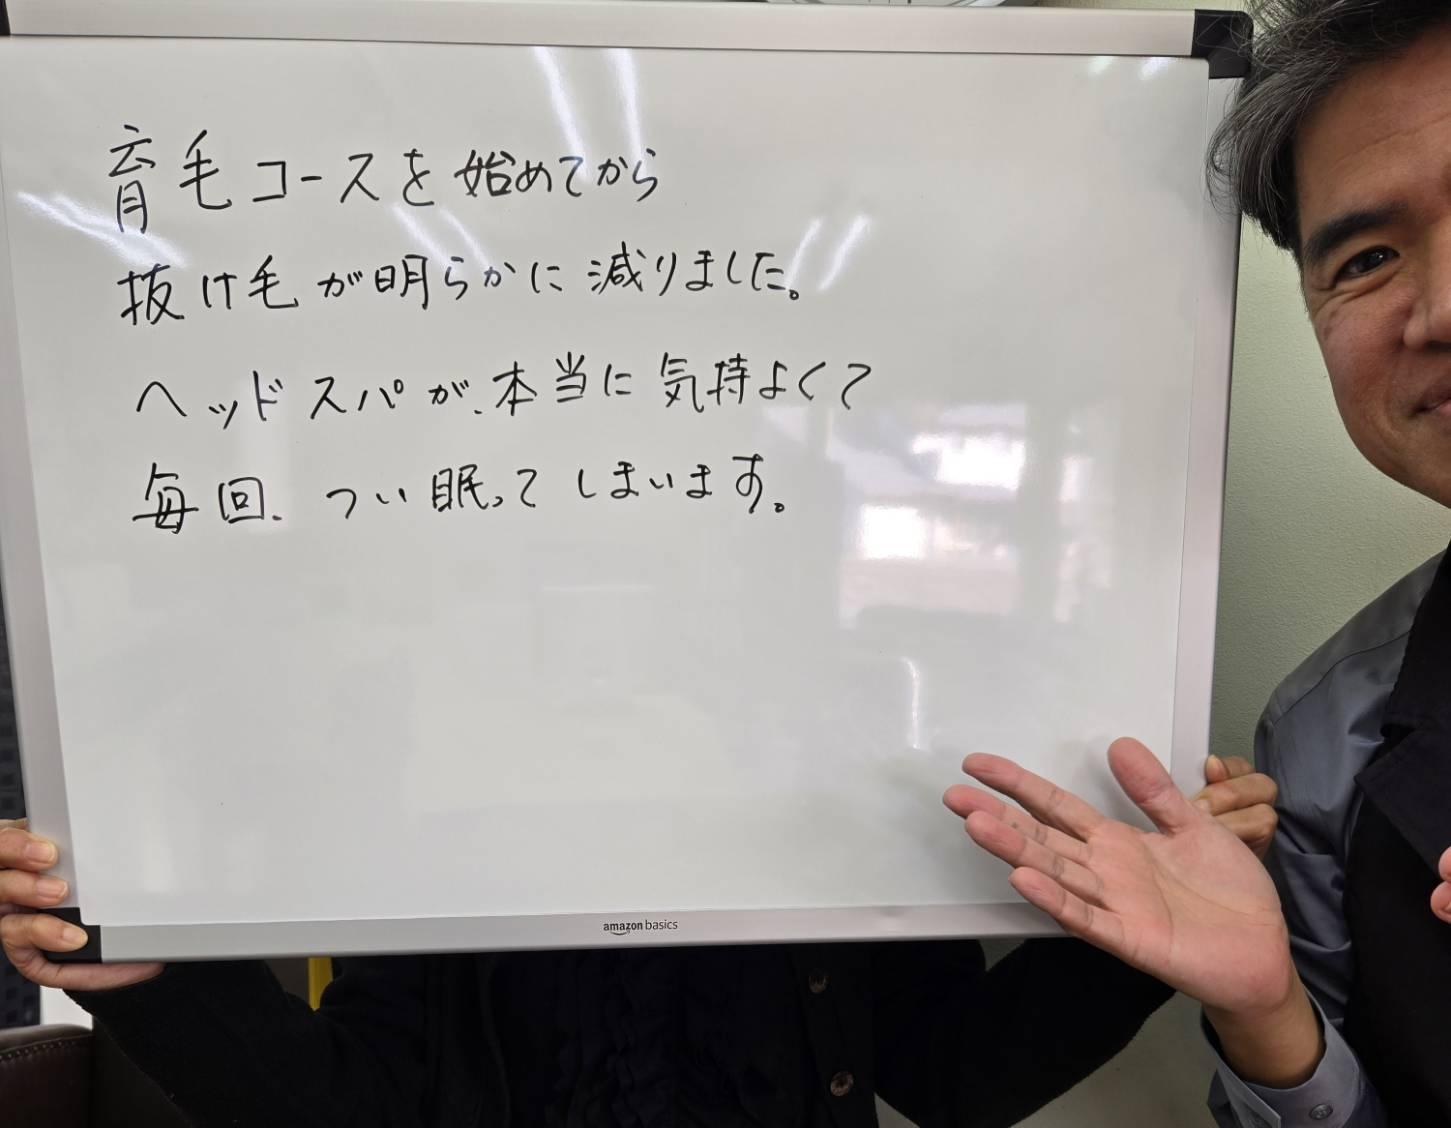 育毛コースを始めてから
抜け毛が明らかに減りました。
ヘッドスパが、本当に気持よくて
毎回、つい眠ってしまいます。
amazon basics